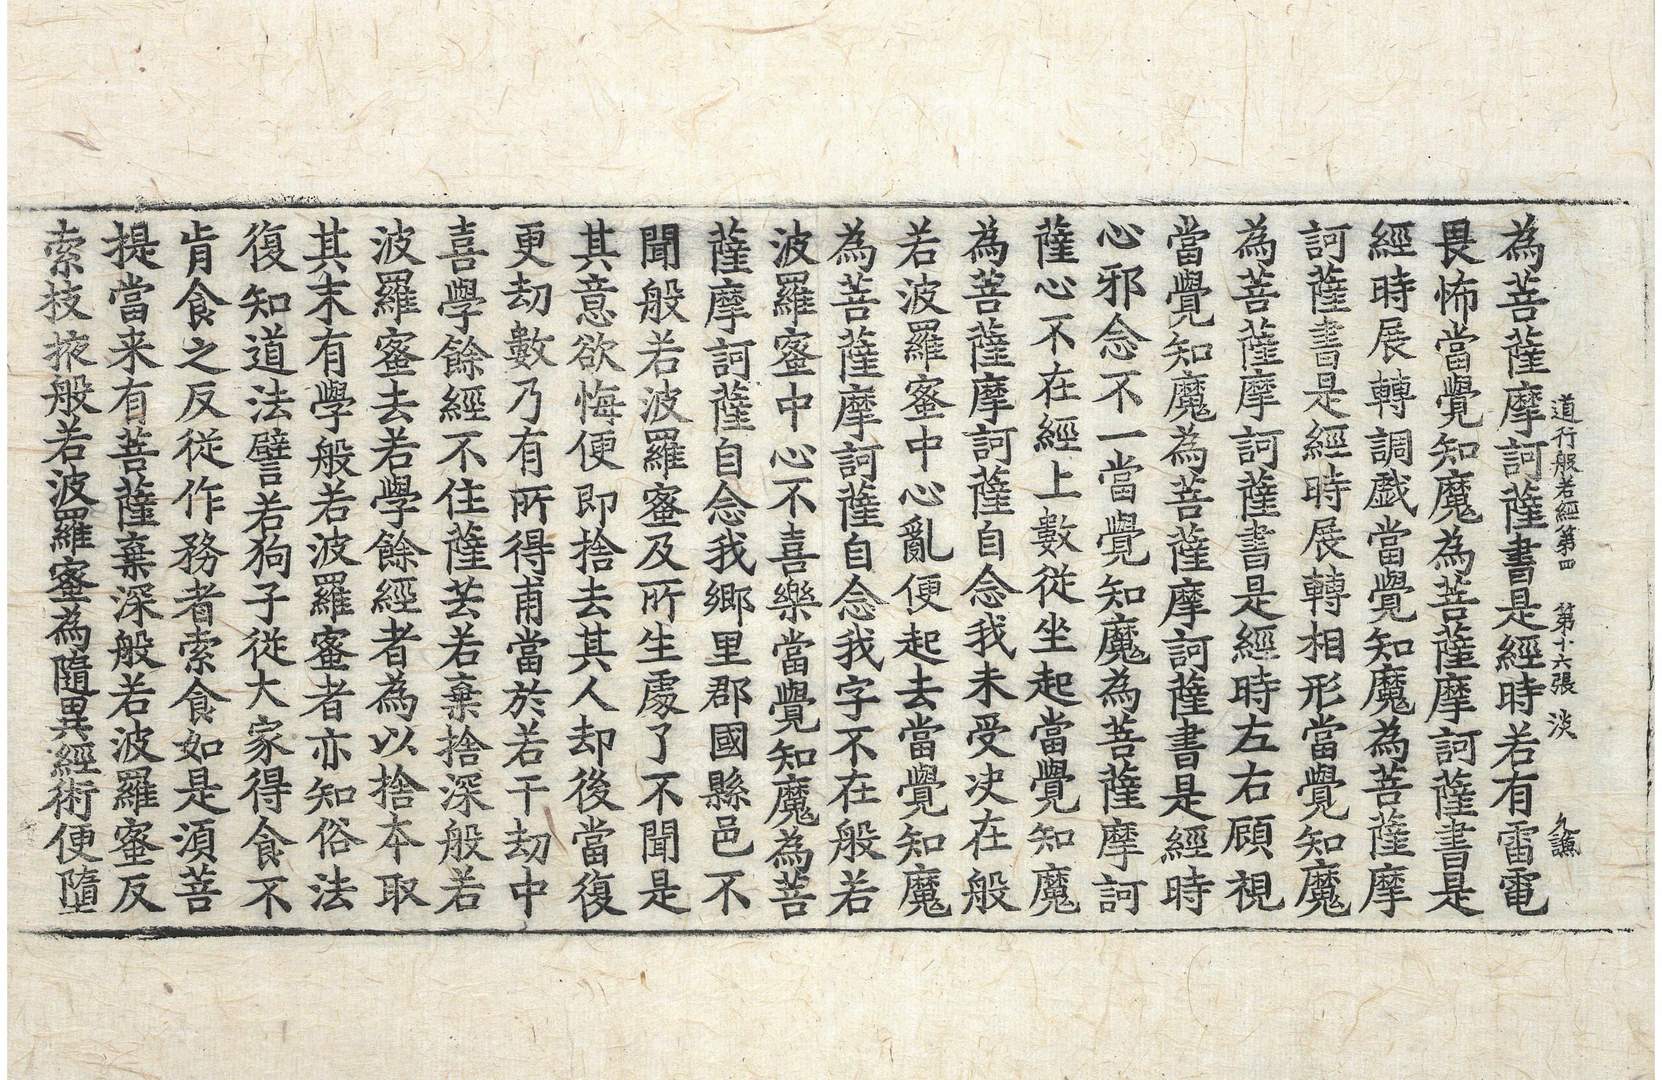 道行般若經第四 第十六張 淡
為菩薩摩訶薩書是經時若有雷電
畏怖當覺知魔為菩薩摩訶薩書是
經時展轉調戲當覺知魔為菩薩摩
訶薩書是經時展轉相形當覺知魔
為菩薩摩訶薩書是經時左右顧視
當覺知魔為菩薩摩訶薩書是經時
心邪念不一當覺知魔為菩薩摩訶
薩心不在經上數從坐起當覺知魔
為菩薩摩訶薩自念我未受決在般
若波羅蜜中心亂便起去當覺知魔
為菩薩摩訶薩自念我字不在般若
波羅蜜中心不喜樂當覺知魔為菩
薩摩訶薩自念我鄉里郡國縣邑不
聞般若波羅蜜及所生處了不聞是
其意欲悔便即捨去其人却後當復
更劫數乃有所得甫當於若干劫中
喜學餘經不住薩芸若棄捨深般若
波羅蜜去若學餘經者為以捨本取
其末有學般若波羅蜜者亦知俗法
復知道法譬若狗子從大家得食不
肯食之反從作務者索食如是須菩
提當来有菩薩棄深般若波羅蜜反
索枝掖般若波羅蜜為隨異經術便隨